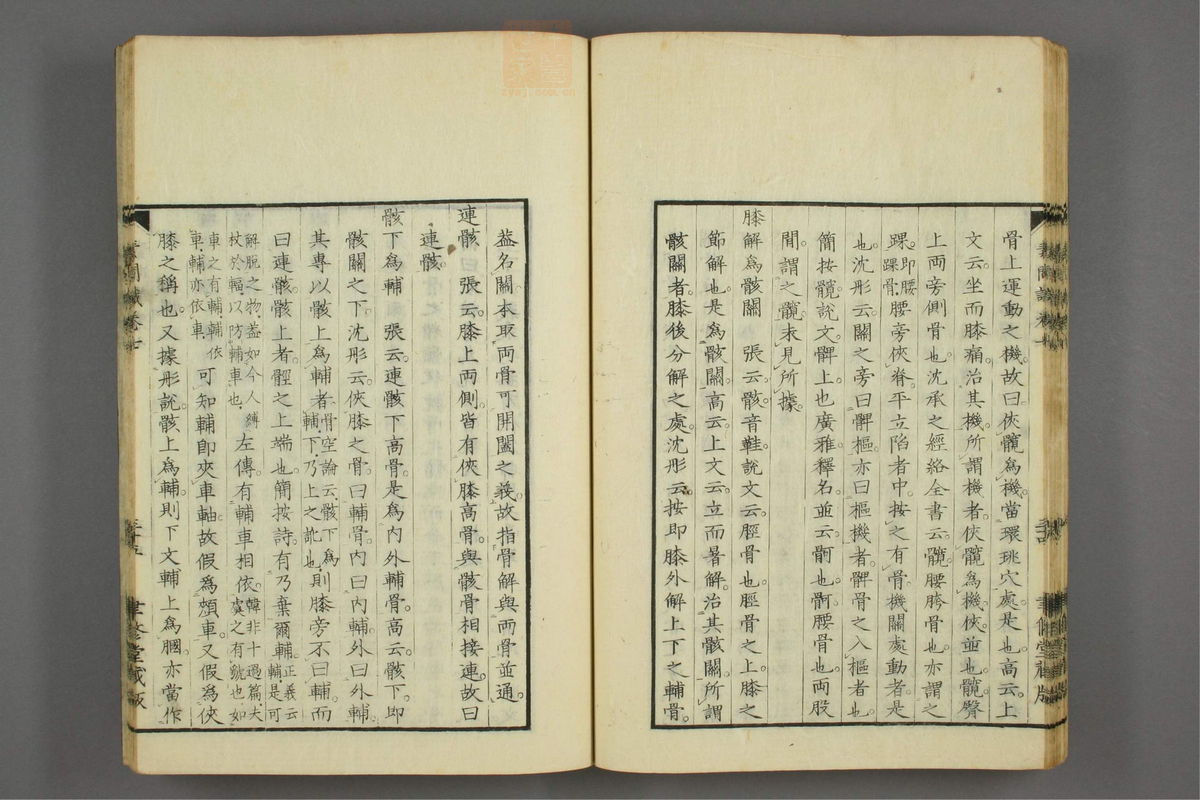 骨上運動之機故曰俠髖爲機當環珧穴處是也高云上
文云坐而膝痛治其機所謂機者俠髖爲機俠並也髖臀
上兩旁側骨也沈承之經絡全書云髖腰胯骨也亦謂之
踝即腰踝骨腰旁俠脊平立陷者中按之有骨機關處動者是
也沈形云關之旁曰髀樞亦曰樞機者髀骨之入樞者也
簡按髖說文髀上也廣雅釋名並云䯊也䯊腰骨也兩股
閒謂之髖未見所據
膝解爲骸關 張云骸音鞋說文云脛骨也脛骨之上膝之
節解也是爲骸關高云上文云立而暑解治其骸關所謂
骸關者膝後分解之處沈形云按即膝外解上下之輔骨
蓋名關本取兩骨可開闔之義故指骨解與兩骨並通
連骸 張云膝上兩側皆有俠膝高骨與骸骨相接連故曰
連骸
骸下爲輔 張云連骸下高骨是爲內外輔骨高云骸下即
骸關之下沈形云俠膝之骨曰輔骨內曰內輔外曰外輔
其專以骸上爲輔者骨空論云骸下爲輔下乃上之訛也則膝旁不曰輔而
曰連骸骸上者脛之上端也簡按詩有乃棄爾輔正義云輔是可
解脫之物蓋如今人縛杖於輻以防輔車也左傳有輔車相依韓非十過篇夫虞之有虢也如
車之有輔輔依車車亦依輔可知輔即夾車軸故假爲頰車又假爲俠
膝之稱也又據形說骸上爲輔則下文輔上爲膕亦當作
素問識卷十
三十五
聿修堂藏版